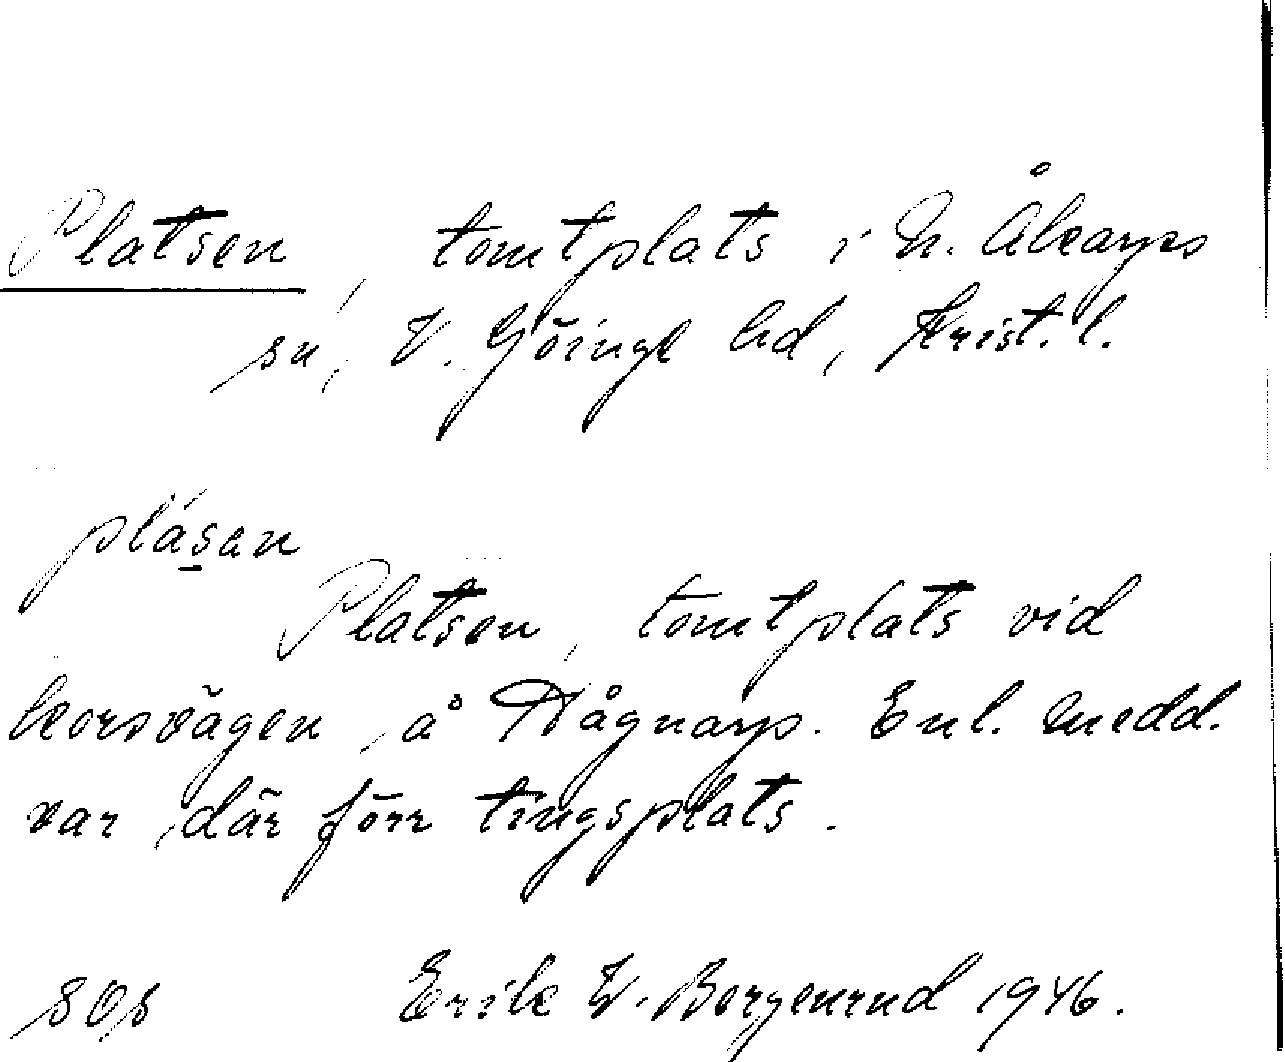 Platsen, tomtplats i N. Åkarps
sn, V. Göinge hd, Krist. l.
plásan
Platsen, tomtplats vid
korsvägen å Hågnarp. Enl. medd.
var där förr tingsplats.
Erik W. Borgenrud 1946.